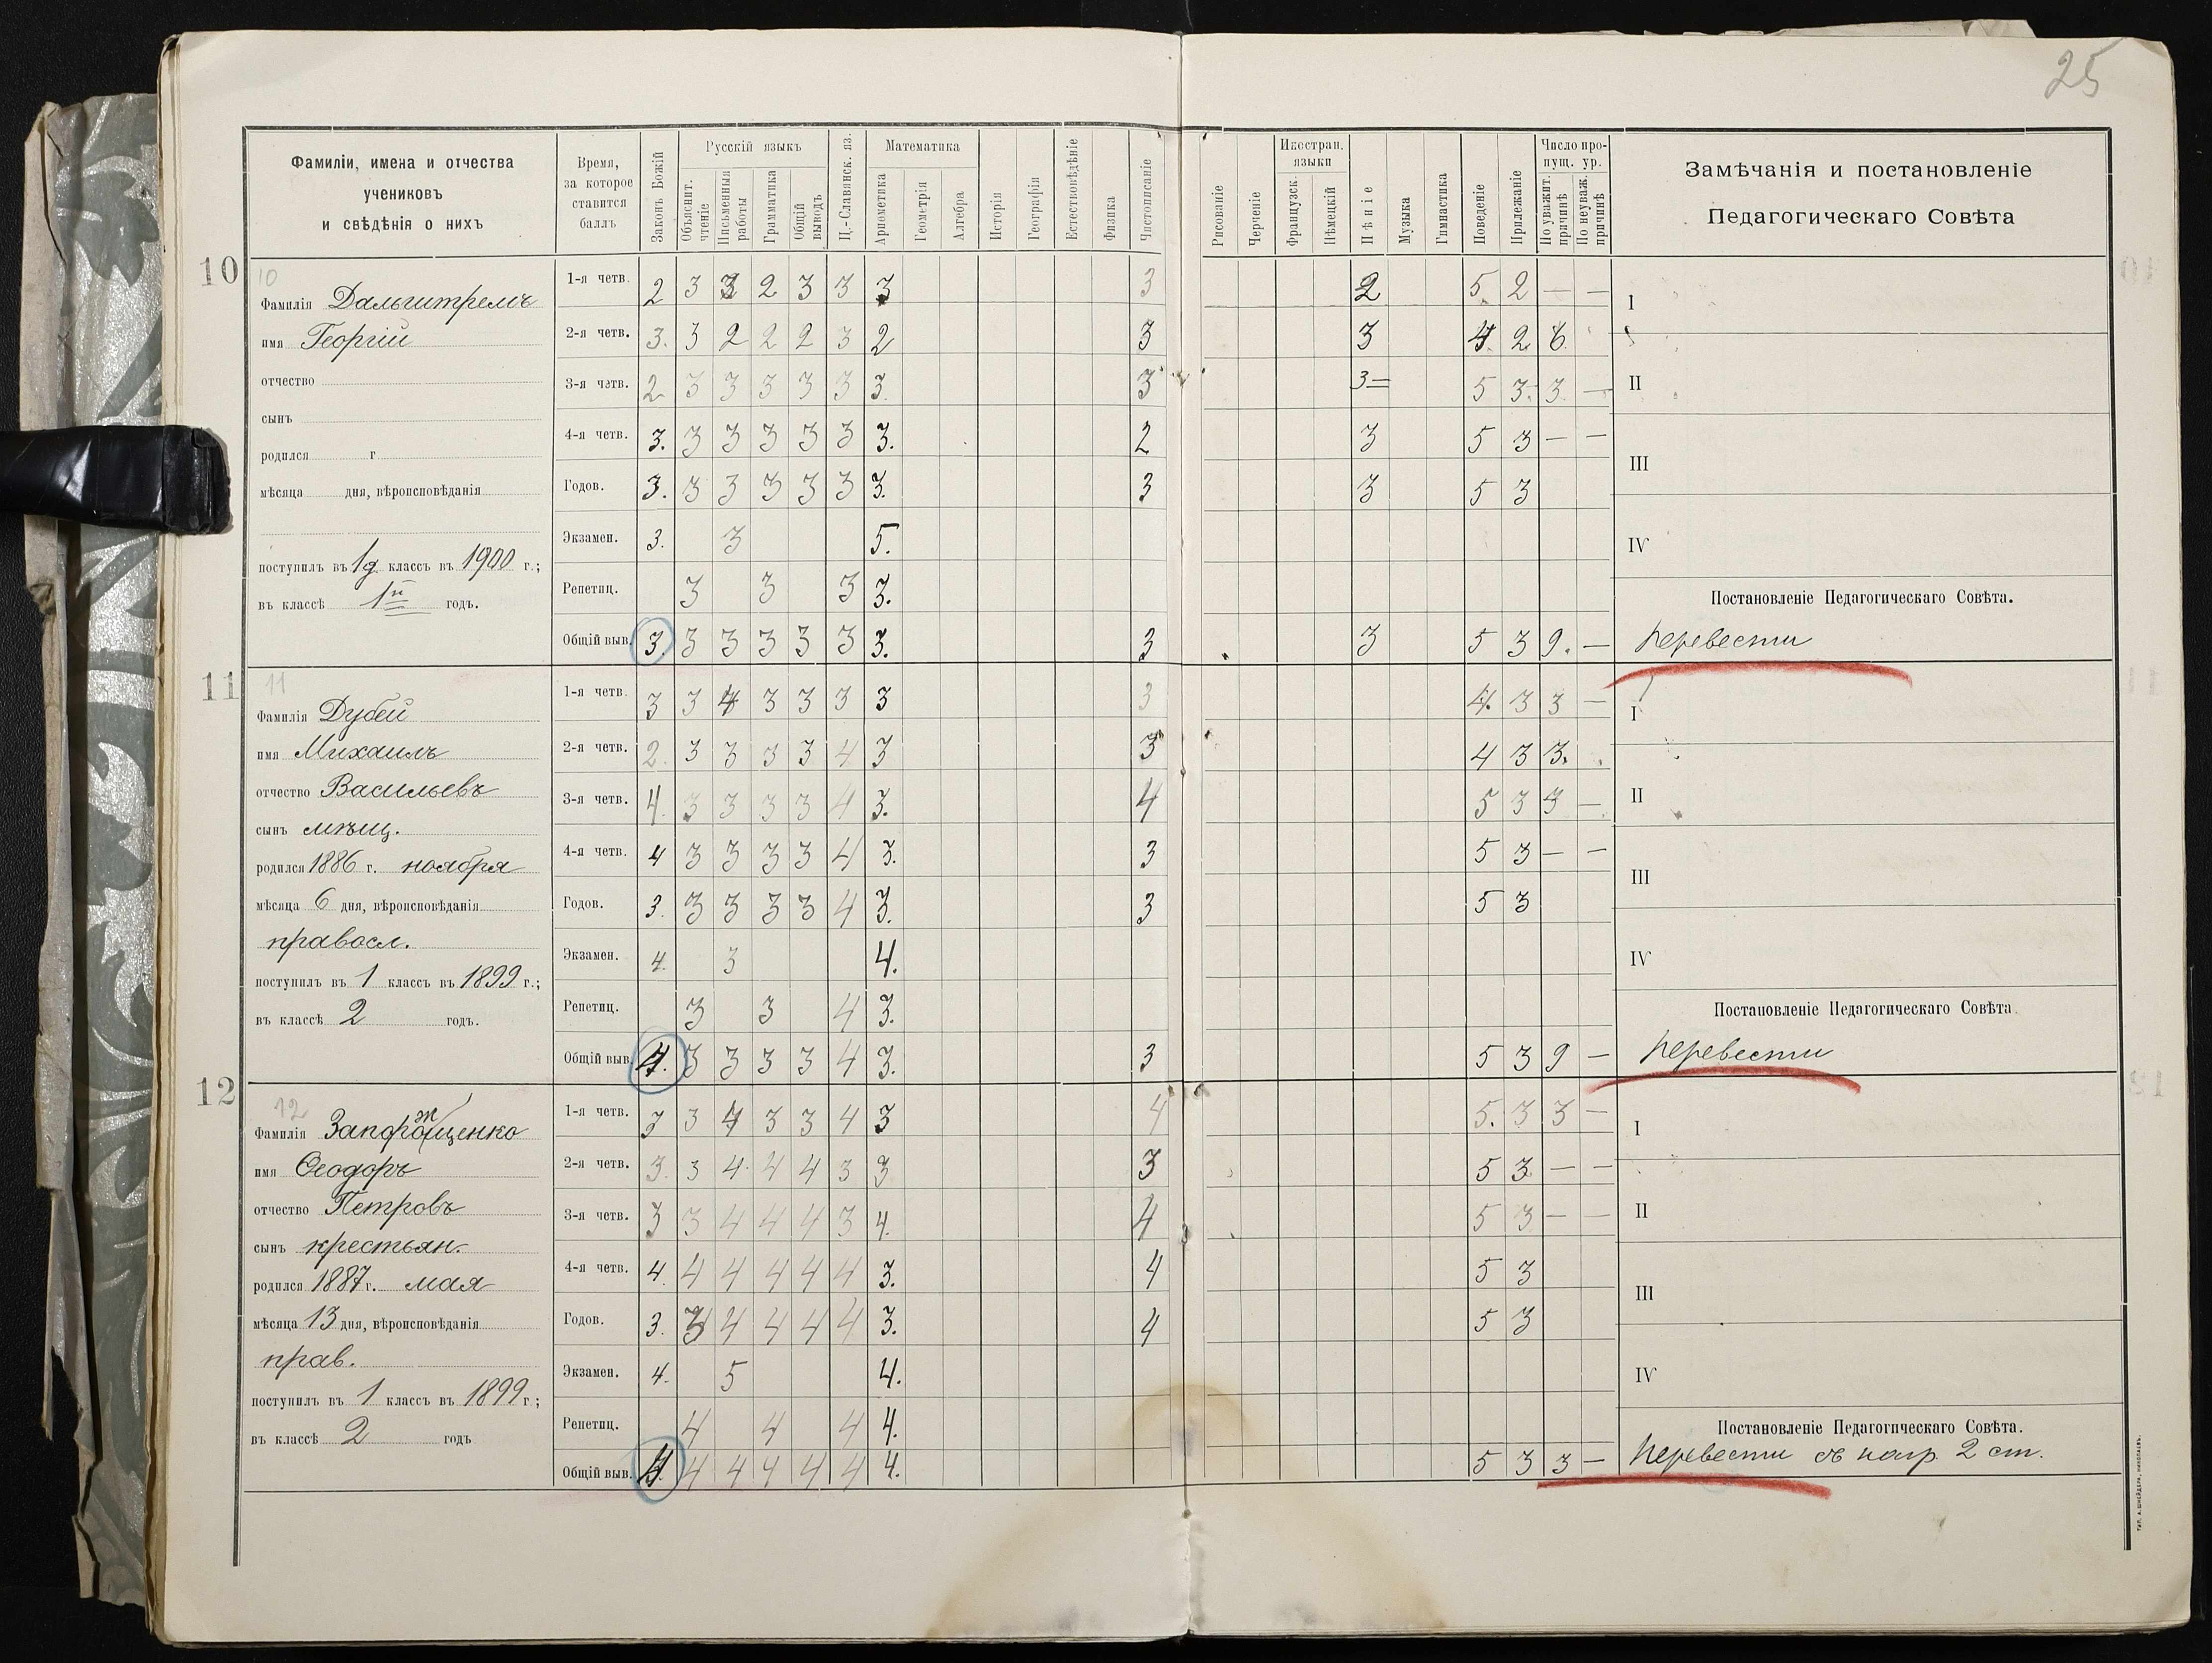 25
Фамиліи, имена и отчества
учениковъ
и свѣдѣнія о нихъ
Время,
за которое
ставится
баллъ
Законъ Божій
Русскій языкъ
Объяснит. чтеніе
Письменныя работы
Грамматика
Общій выводъ
Ц.-Славянск. яз.
Математика
Ариѳметика
Геометрія
Алгебра
Исторія
Географія
Естествовѣдѣніе
Физика
Чистописаніе
Рисованіе
Черченіе
Иностран. языки
Французск.
Нѣмецкій
Пѣніе
Музыка
Гимнастика
Поведеніе
Прилежаніе
Число пропущ. ур.
По уважит. причинѣ
По неуваж. причинѣ
Замѣчанія и постановленіе
Педагогическаго Совѣта
10
10
Фамилія Дальштремъ
имя Георгій
отчество
сынъ
родился г
мѣсяца дня, вѣроисповѣданія
поступилъ въ 1д классъ въ 1900 г.;
въ классѣ 1й годъ.
1-я четв. 2 3 3 2 3 3 3 3 2 5. 2 — —
2-я четв. 3. 3 2 2 2 3 2 3 3 4. 2 6.
3-я четв. 2. 3 3 3 3 3 3. 3 3= 5 3. 3. —
4-я четв. 3. 3 3 3 3 3 3. 2 3 5 3 — —
Годов. 3. 3 3 3 3 3 3. 3 3 5 3
Экзамен. 3. 3 5.
Репетиц. 3 3 3 3.
Общій выв. 3. 3 3 3 3 3 3. 3 3 5 3 9. —
I
II
III
IV
Постановленіе Педагогическаго Совѣта.
перевести
11
11
Фамилія Дубей
имя Михаилъ
отчество Васильевъ
сынъ мѣщ.
родился 1886 г. ноября
мѣсяца 6 дня, вѣроисповѣданія
правосл.
поступилъ въ 1 классъ въ 1899 г.;
въ классѣ 2 годъ.
1-я четв. 3 3 4 3 3 3 3 3 4. 3 3 —
2-я четв. 2. 3 3 3 3 4 3 3 4 3 3.
3-я четв. 4. 3 3 3 3 4 3. 4 5 3 3 —
4-я четв. 4 3 3 3 3 4 3. 3 5 3 — —
Годов. 3. 3 3 3 3 4 3. 3 5 3
Экзамен. 4. 3 4.
Репетиц. 3 3 4 3.
Общій выв. 4. 3 3 3 3 4 3. 3 5 3 9 —
I
II
III
IV
Постановленіе Педагогическаго Совѣта.
перевести
12
12
Фамилія Запорощенко
ж
имя Ѳеодоръ
отчество Петровъ
сынъ крестьян.
родился 1887 г. мая
мѣсяца 13 дня, вѣроисповѣданія
прав.
поступилъ въ 1 классъ въ 1899 г;
въ классѣ 2 годъ
1-я четв. 3 3 4 3 3 4 3 4 5. 3 3 —
2-я четв. 3. 3 4. 4 4 3 3 3 5 3 — —
3-я четв. 3 3 4 4 4 3 4. 4 5 3 — —
4-я четв. 4. 4 4 4 4 4 3. 4 5 3
Годов. 3. 3 4 4 4 4 3. 4 5 3
Экзамен. 4. 5 4.
Репетиц. 4 4 4 4.
Общій выв. 4. 4 4 4 4 4 4. 5 3 3 —
I
II
III
IV
Постановленіе Педагогическаго Совѣта.
перевести съ нагр. 2 ст.